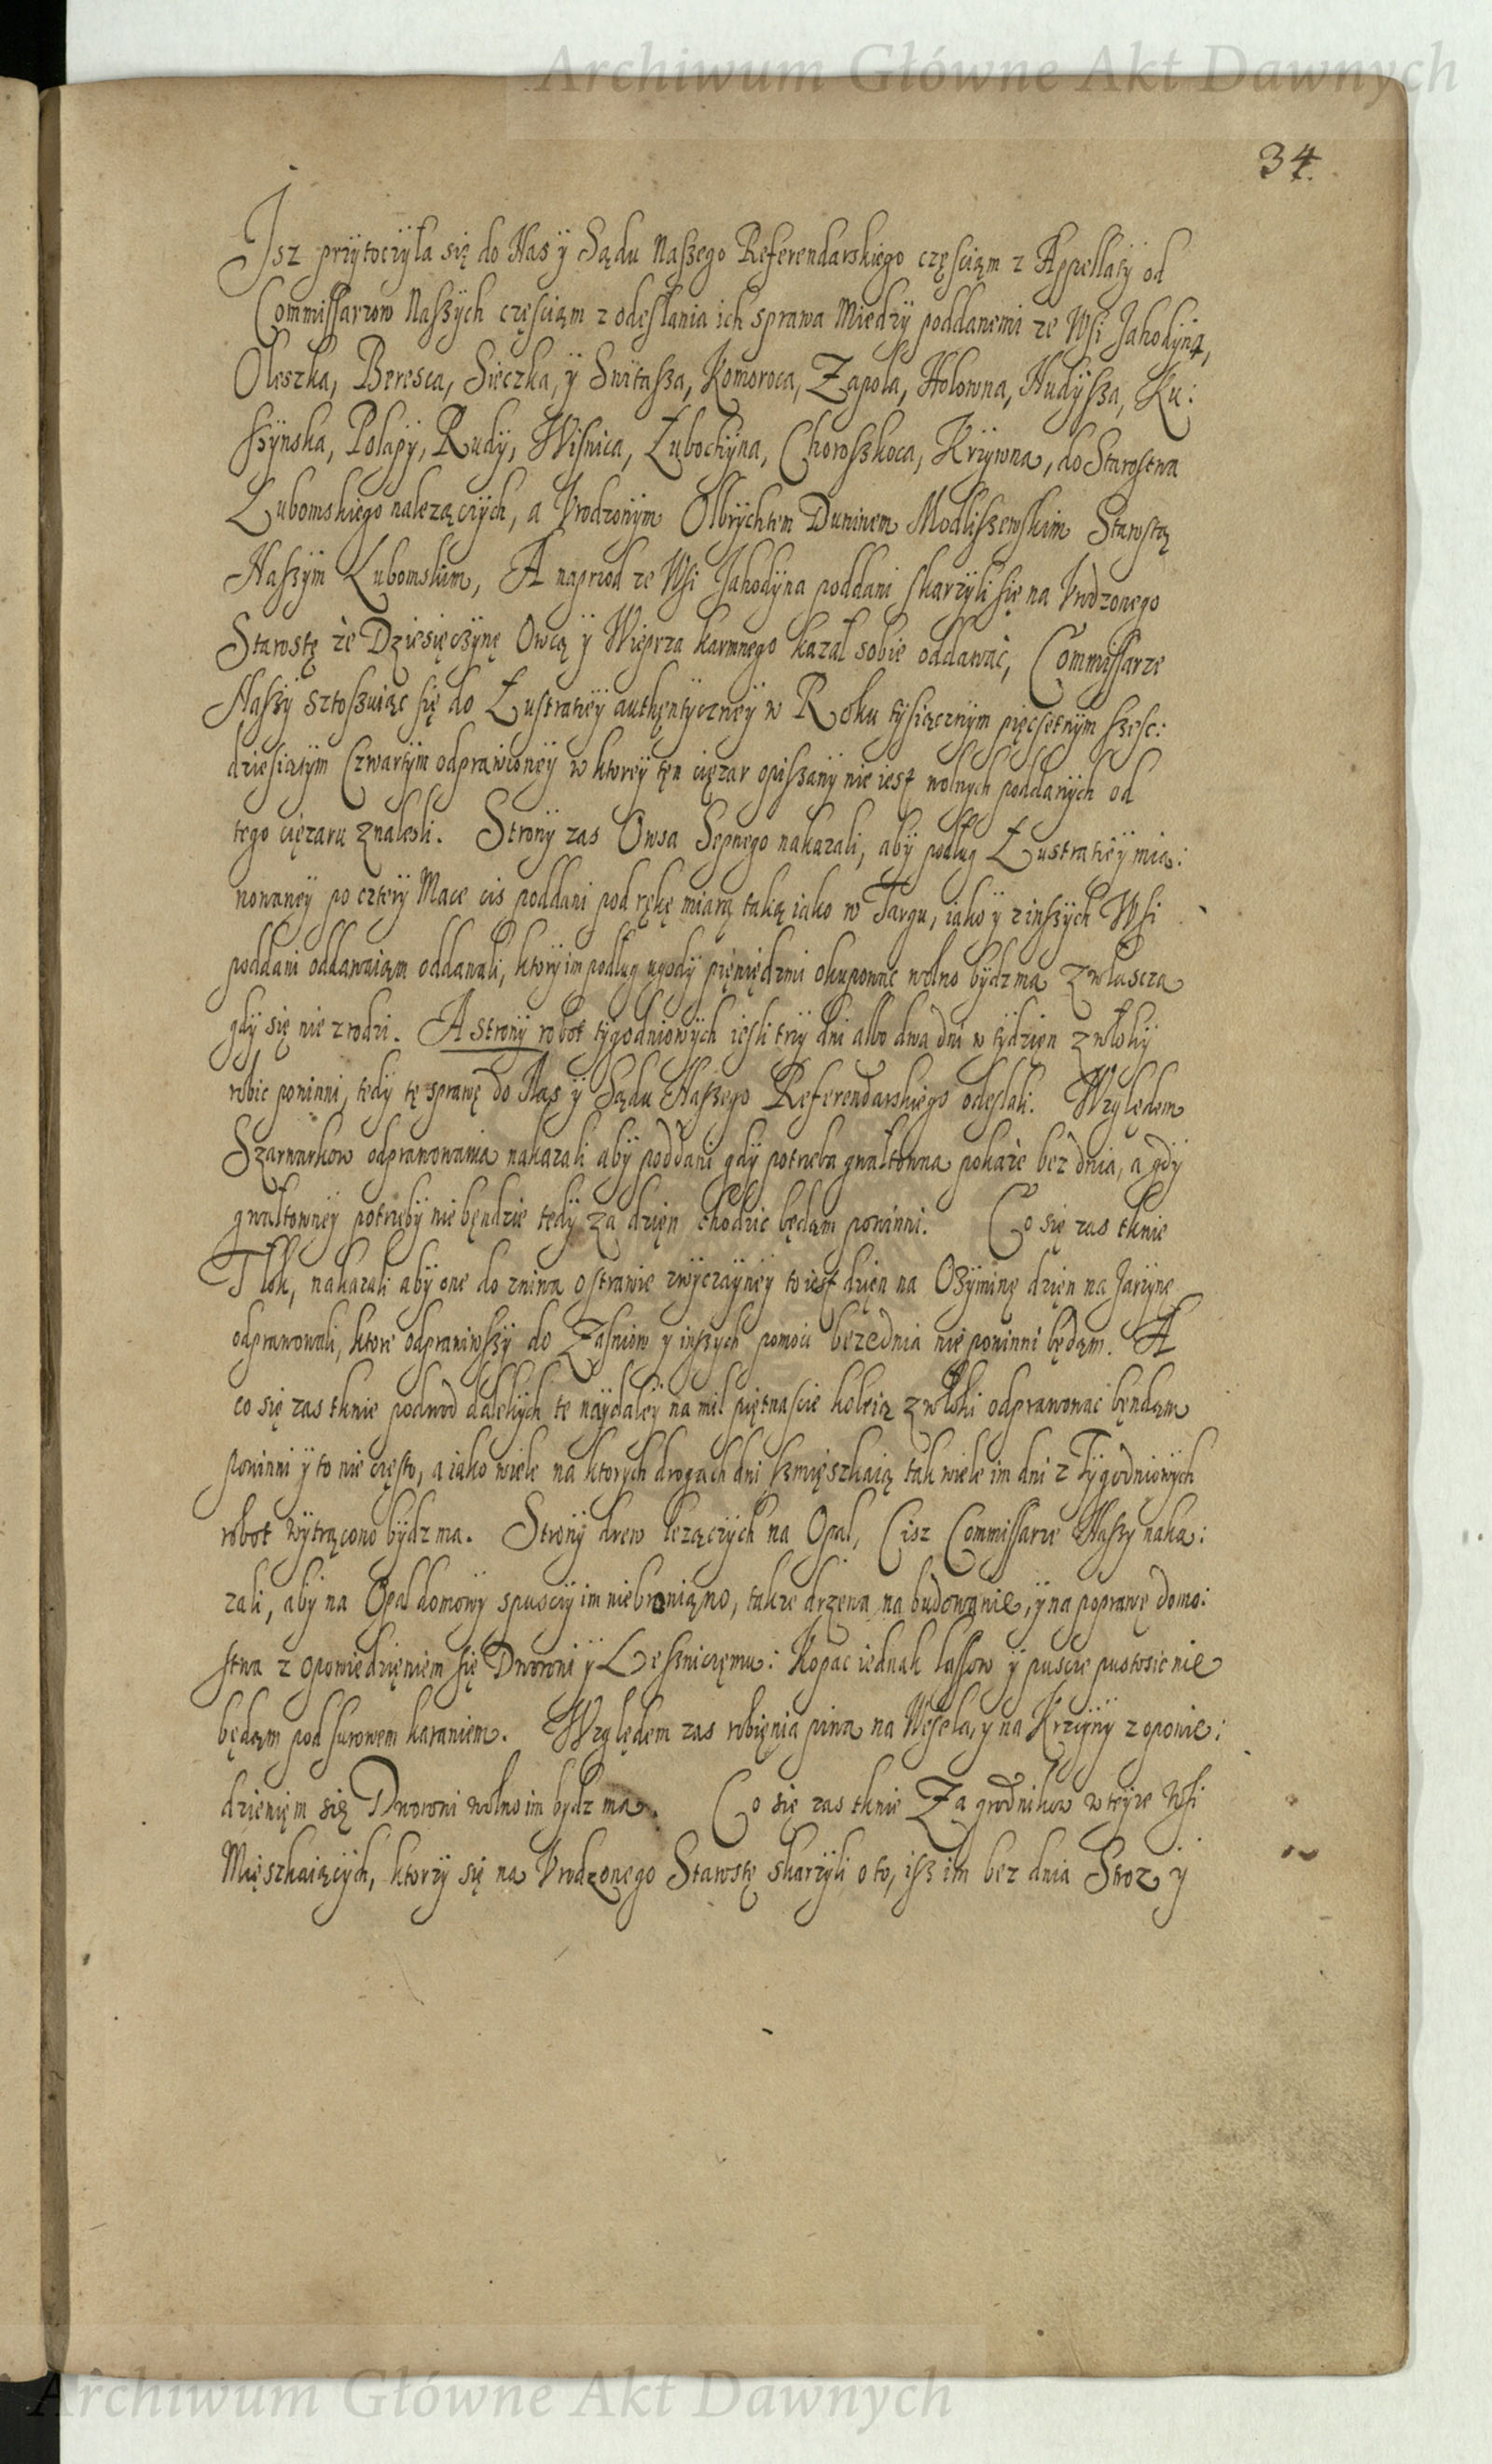 Archiwum Główne Akt Dawnych
34.
Isz przÿtoczÿła się do Nas ÿ Sądu Naszego Referendarskiego częściąm z Appellatÿ od
Commissarzow Naszÿch częściąm z odesłania ich sprawa Miedzÿ poddanemi ze Wsi Jahodÿna,
Oleszka, Beresca, Sieczka, ÿ Switasza, Komoroca, Zapola, Holowna, Hudÿsza, Ku:
szÿnska, Polapÿ, Rudÿ, Wisnica, Łubochÿna, Choroszkoca, Krzÿwna, do Starostwa
Lubomskiego nalezączÿch, a Vrodzonÿm Olbrÿchtem Duninem Modliszewskim Starostą
Naszÿm Lubomskim, A naprzod ze Wsi Jahodÿna poddani skarzÿli się na Vrodzonego
Starostę że Dziesięczÿnę Owczą ÿ Wieprza karmnego kazał sobie oddawać, Commissarze
Naszÿ sztoszuiąc się do Łustratieÿ authentÿcznеÿ w Roku tÿsiącznÿm pięcsetnÿm szesc:
dziesiatÿm Czwartÿm odprawioneÿ w ktoreÿ ten ciężar opiszanÿ nie iest wolnÿch poddanÿch od
tego ciężaru znalesli. Stronÿ zas Owsa Sepnego nakazali, abÿ podług Łustratieÿ mia:
nowaneÿ po czterÿ Mace cis poddani pod rękę miarą taką iako w Targu, iako ÿ z inszÿch Wsi
poddani oddawaiąm oddawali, ktorÿ im podług ugodÿ pieniędzmi okupować wolno bÿdz ma zwłascza
gdÿ się nie zrodzi. A stronÿ robot tÿgodniowÿch iesli trzÿ dni albo dwa dni w tÿdzięn z włokÿ
robic powinni, tedÿ tę sprawę do Nas ÿ Sądu Naszego Referendarskiego odesłali. Względem
Szarwarkow odprawowania nakazali abÿ poddani gdÿ potrzeba gwałtowna pokaże bez dnia, a gdÿ
gwałtowneÿ potrzebÿ nie będzie tedÿ za dzięn chodzic będąm powinni. Co się zas tknie
Tłok, nakazali abÿ one do zniwa o strawie zwÿczaÿneÿ to iest dzięn na Ozÿminę dzięn na Jarzÿnę
odprawowali, ktore odprawiwszÿ do Zasiewow ÿ inszÿch pomocÿ bezednia nie powinni będąm. A
co się zas tknie podwod dalekÿch te naÿdaleÿ na mil piętnascie koleią z włoki odprawowac będąm
powinni ÿ to nie często, a iako wiele na ktorÿch drogach dni zmięszkaią tak wiele im dni z Tÿgodniowÿch
robot wÿtrącono bÿdz ma. Stronÿ drew lezączÿch na Opał, Cisz Commissarze Naszÿ naka:
zali, abÿ na Opal domowÿ spusczÿ im niebroniąno, takze drzewa na budowanie, ÿ na poprawę domo:
stwa z opowiedzięniem się Dworowi ÿ Lesniczemu: Kopac iednak lassow ÿ puscze pustosic nie
będąm pod surowem karaniem. Względem zas robięnia piwa na Wesela, ÿ na Krzcinÿ z opowie:
dzięnięm się Dworowi wolno im bÿdz ma. Co się zas tknie Zagrodnikow w teÿze Wsi
Mięszkaiącÿch, ktorzÿ się na Vrodzonego Starostę skarzÿli o to, isz im bez dnia Stroz ÿ
Archiwum Główne Akt Dawnych